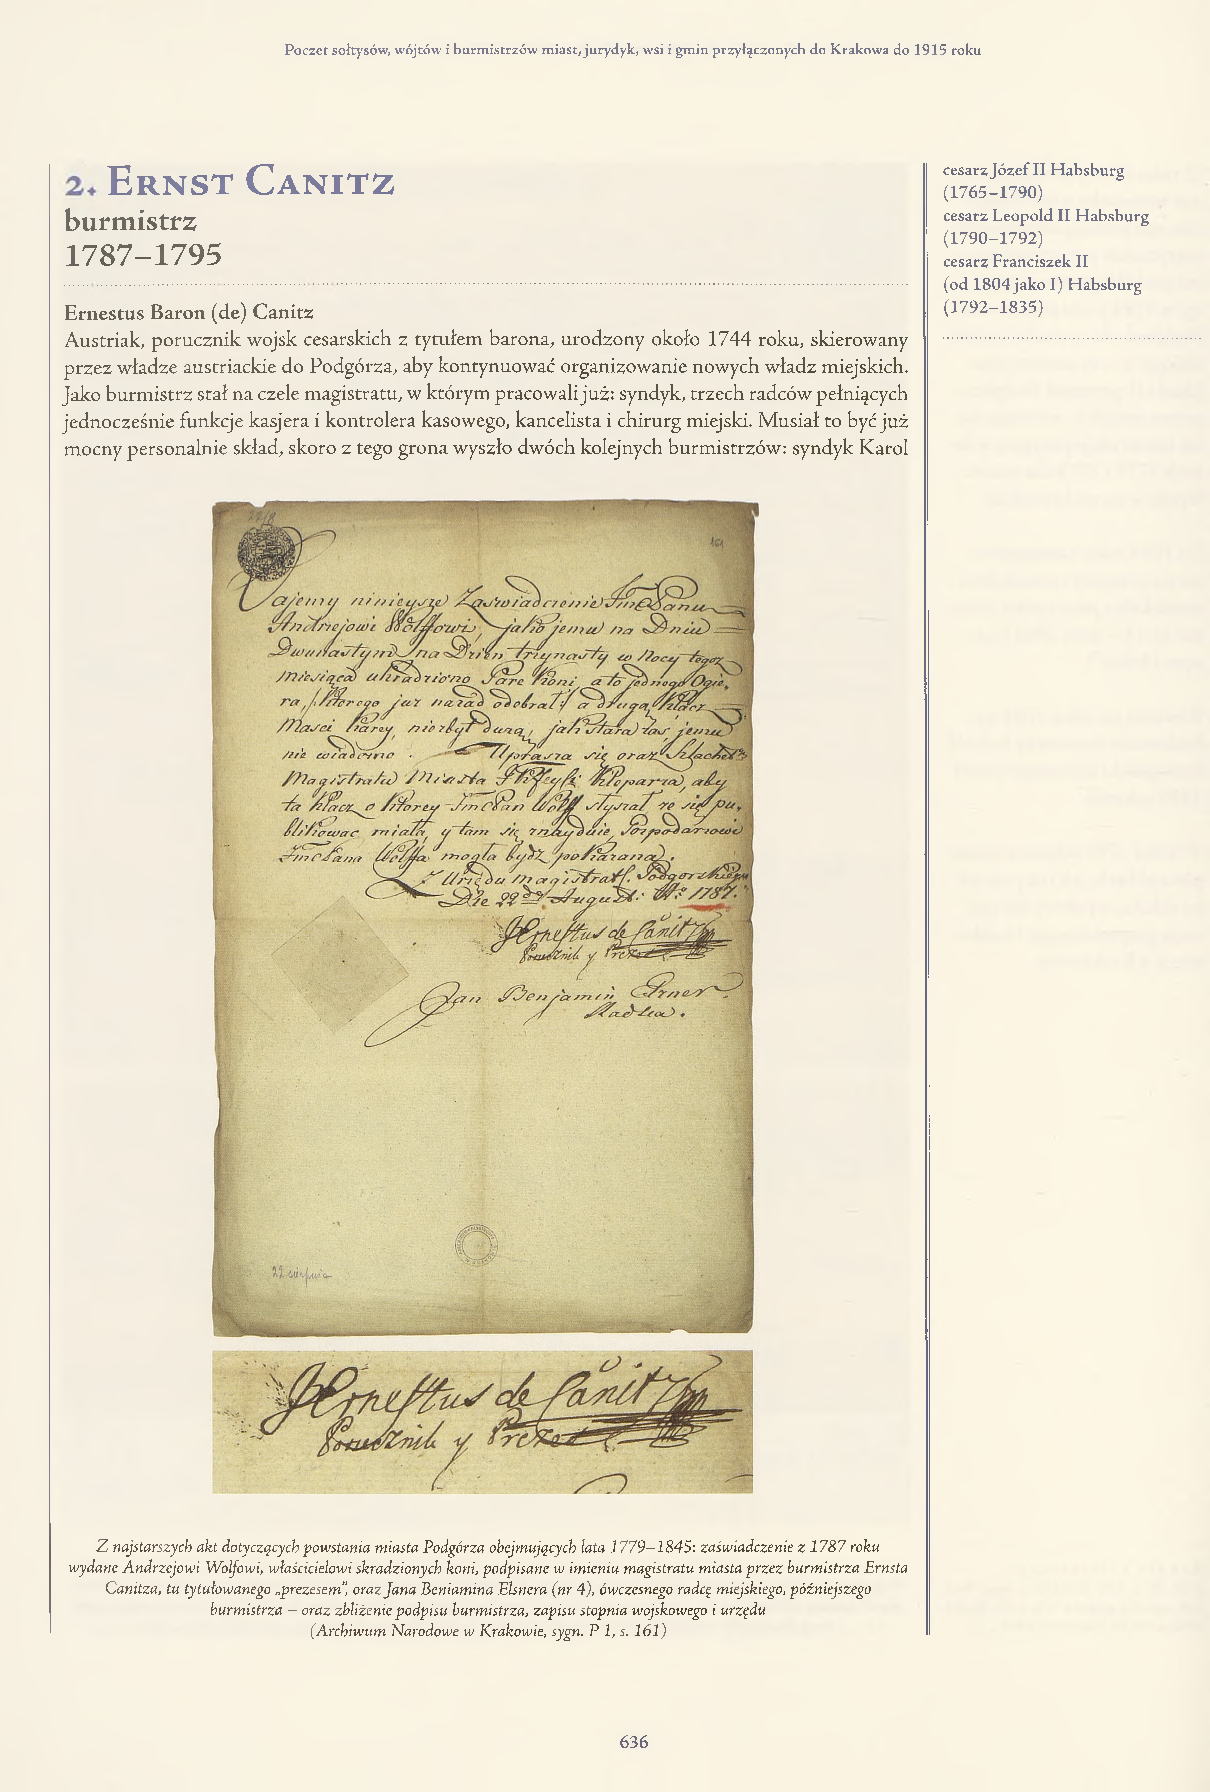 Poczet sołtysów, wójtów i burmistrzów miast, jurydyk, wsi i gmin przyłączonych do Krakowa do 1915 roku
2. Ernst Canitz
burmistrz
1787–1795
Ernestus Baron (de) Canitz
Austriak, porucznik wojsk cesarskich z tytułem barona, urodzony około 1744 roku, skierowany
przez władze austriackie do Podgórza, aby kontynuować organizowanie nowych władz miejskich.
Jako burmistrz stał na czele magistratu, w którym pracowali już: syndyk, trzech radców pełniących
jednocześnie funkcje kasjera i kontrolera kasowego, kancelista i chirurg miejski. Musiał to być już
mocny personalnie skład, skoro z tego grona wyszło dwóch kolejnych burmistrzów: syndyk Karol
cesarz Józef II Habsburg
(1765–1790)
cesarz Leopold II Habsburg
(1790–1792)
cesarz Franciszek II
(od 1804 jako I) Habsburg
(1792–1835)
161
Dajemy ninieysze Zaswiadczenie Jmć Panu
Andrzejowi Wolffowi, jako jemu na Dniu
Dwunastym na Dzien trzynasty w Nocy tegoz
miesiąca ukradziono Pare Koni a to jednego Ogie-
ra, /: ktorego juz nazad odebrał :/ a drugą Klacz
Masci Karey, niezbyt duzą, jak stara zas jemu
nie wiadomo. Uprasza się oraz Szlachet:
Magistratu Miasta Kleparza, aby
ta Klacz o ktorey Jmć Pan Wolff słyszał ze się pu-
blikowac miała, y tam się znayduie, Gospodarzowi
Jmć Pana Wolffa mogła bydz pokazana.
Z Urzędu magistrat: Podgorskiego
Die 22 August: Ao 1787.
Ernestus de Canitz
Porucznik y Prezes
Jan Benjamin Elsner
Radzca.
22 sierpnia
Ernestus de Canitz
Porucznik y Prezes
Z najstarszych akt dotyczących powstania miasta Podgórza obejmujących lata 1779–1845: zaświadczenie z 1787 roku
wydane Andrzejowi Wolfowi, właścicielowi skradzionych koni, podpisane w imieniu magistratu miasta przez burmistrza Ernsta
Canitza, tu tytułowanego „prezesem”, oraz Jana Beniamina Elsnera (nr 4), ówczesnego radcę miejskiego, późniejszego
burmistrza – oraz zbliżenie podpisu burmistrza, zapisu stopnia wojskowego i urzędu
(Archiwum Narodowe w Krakowie, sygn. P 1, s. 161)
636